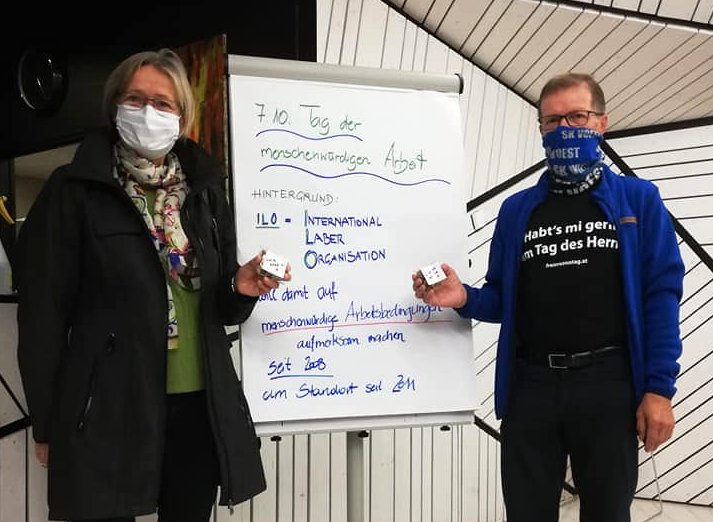 7.10. Tag der
menschenwürdigen Arbeit
HINTERGRUND:
ILO = INTERNATIONAL
LABER
ORGANISATION
will damit auf
menschenwürdige Arbeitsbedingungen
aufmerksam machen
seit 2008
am Standort seit 2011
SK
Habt's mi gern
m Tag des Herrn
freiersonntag.at